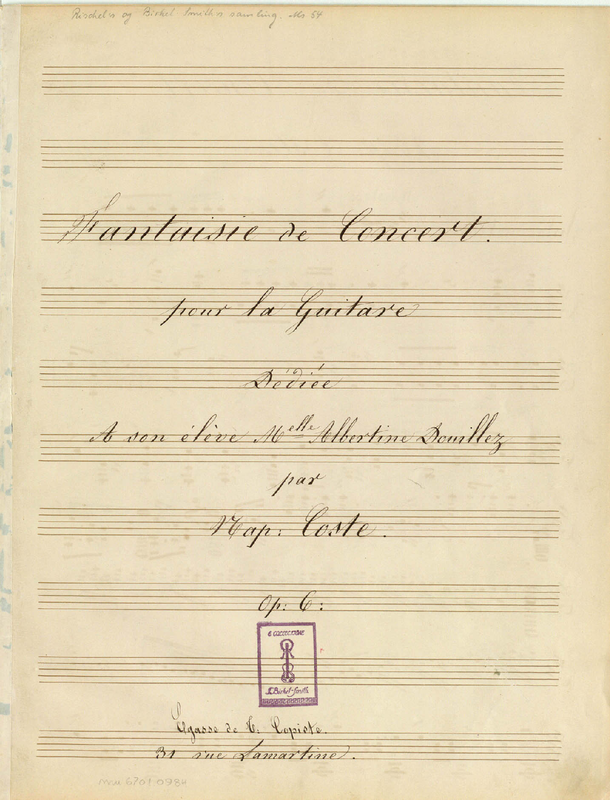 Rischel's og Birket Smith's samling. Ms 54
Fantaisie de Concert.
pour la Guitare
Dédiée
A son élève Melle Albertine Douillez
par
Nap: Coste.
Op: 6:
E COLLECTIONE
Birket-Smith
de Copiste.
31 rue Lamartine.
mu 6701-0984